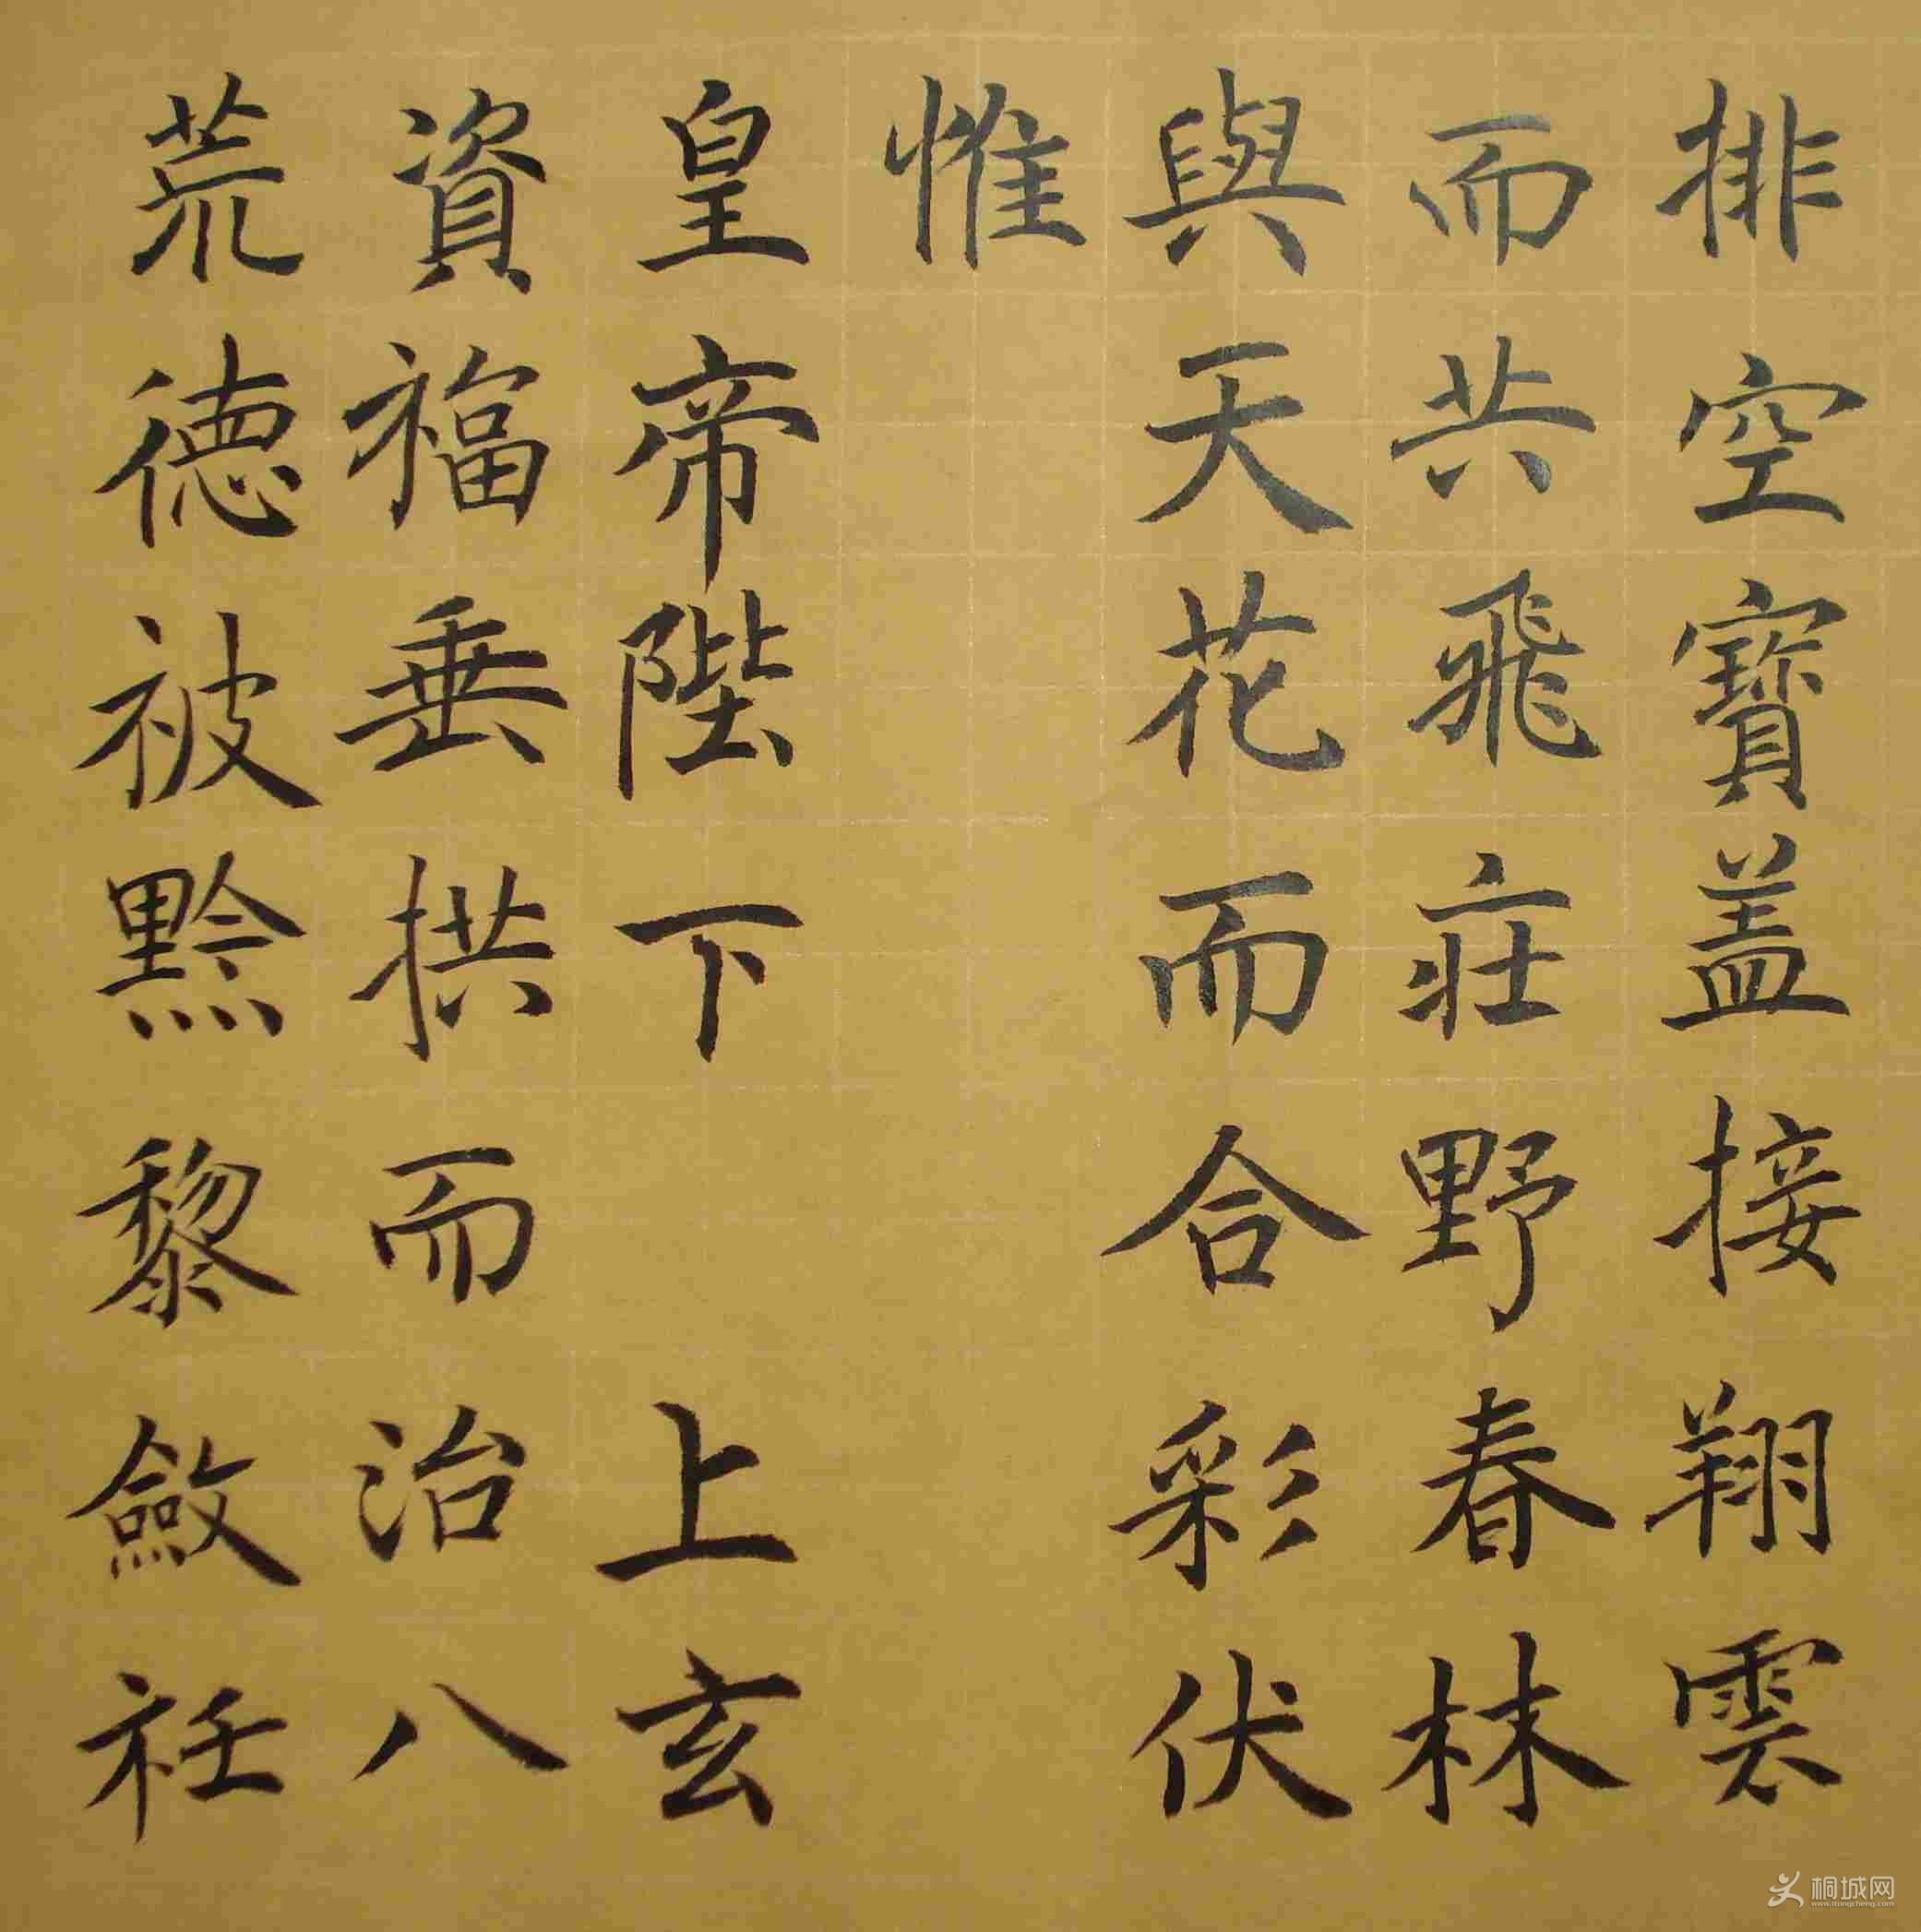 排空寶蓋接翔雲
而共飛莊野春林
與天花而合彩伏
惟
皇帝陛下 上玄
資福垂拱而治八
荒德被黔黎斂衽
桐城网
www.itongcheng.com